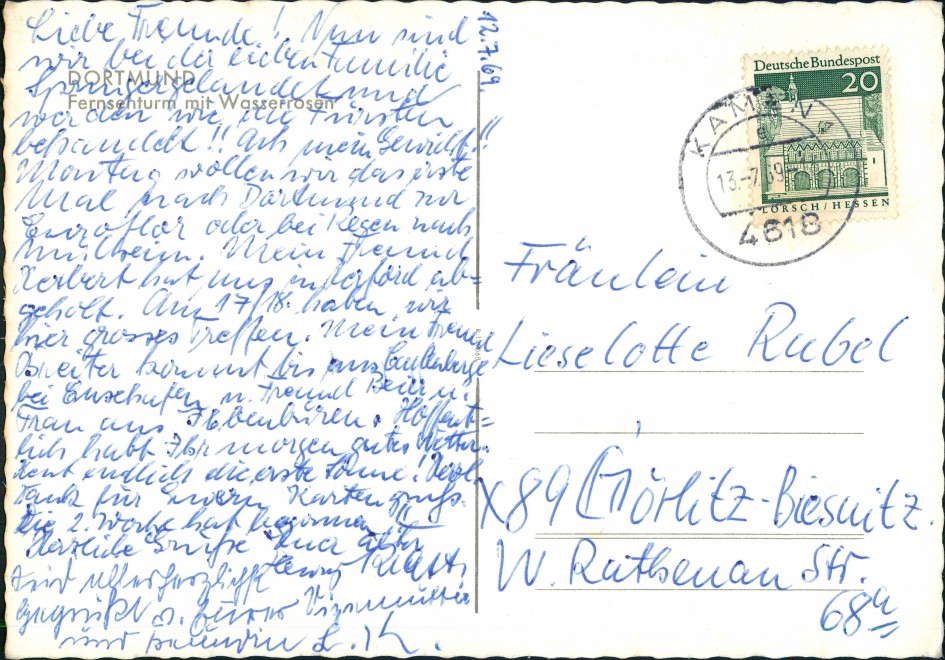 12.7.69.
Liebe Freunde! Nun sind
wir bei der lieben Familie
gelandet und
werden wie die Fürsten
behandelt!! Ach mein Gewicht!!
Montag wollen wir das erste
Mal nach Dortmund zur
Euroflor oder bei Regen nach
Mülheim. Mein Freund
Herbert hat uns in Herford ab=
geholt. Am 17/18. haben wir
hier grosses Treffen. Mein Freund
Breiter kommt bis aus
bei u. Freund Beier u.
Frau aus Ibbenbüren. Hoffent=
lich habt Ihr morgen gutes Wetter.
Heut endlich die erste Sonne! Viel
Dank für Euern Kartengruß.
Die 2. Woche hat begonnen
Herzliche Grüße Euer alter
Seid allerherzlichst
gegrüßt v.
und Freundin L. K.
DORTMUND
Fernsehturm mit Wasserrosen
Deutsche Bundespost
20
LORSCH/HESSEN
KAMEN
13.-7.69
4618
Fräulein
Lieselotte Rubel
X89 Görlitz-Biesnitz.
W. Rathenau Str.
68a